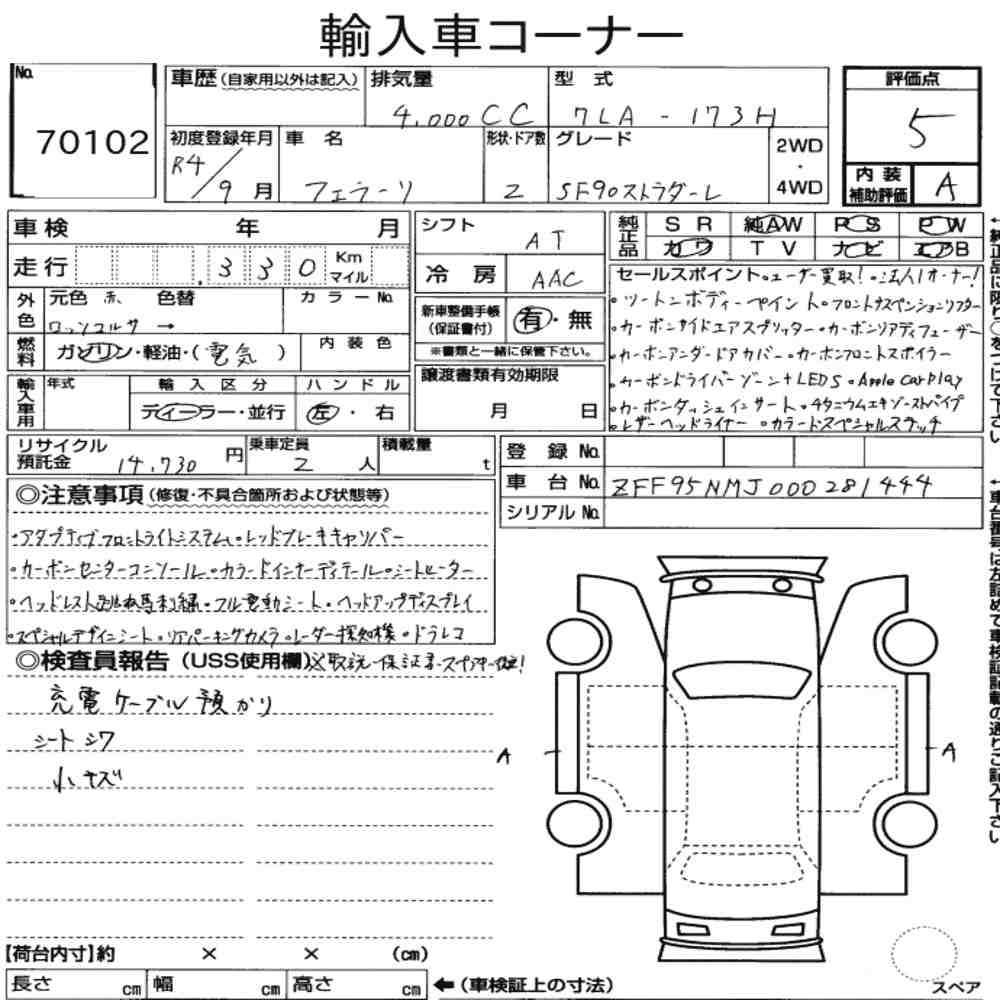 輸入車コーナー
No.
70102
車歴(自家用以外は記入)
排気量
4,000CC
型式
7LA - 173H
評価点
5
初度登録年月
R4/9月
車名
フェラーリ
形状・ドア数
2
グレード
SF90ストラダーレ
2WD
・
4WD
内装
補助評価
A
車検 年 月
走行 , 3 3 0 Km マイル
外色
元色 赤 色替
ロッソコルサ →
カラーNo.
燃料
ガソリン・軽油・(電気)
内装色
輸入車用
年式
輸入区分
ディーラー・並行
ハンドル
左・右
シフト
AT
冷房
AAC
新車整備手帳
(保証書付)
有・無
※書類と一緒に保管下さい。
譲渡書類有効期限
月 日
純正品
SR 純AW PS PW
カワ TV ナビ エアB
セールスポイント・ユーザー買取!・法人1オーナー!
・ツートンボディーペイント・フロントサスペンションリフター
・カーボンサイドエアスプリッター・カーボンリアディフューザー
・カーボンアンダードアカバー・カーボンフロントスポイラー
・カーボンドライバーゾーン+LEDS・Apple carplay
・カーボンダッシュインサート・チタニウムエキゾーストパイプ
・レザーヘッドライナー・カラードスペシャルステッチ
リサイクル
預託金
14,730円
乗車定員
2人
積載量
t
登録No.
車台No.
ZFF95NMJ000281444
シリアルNo.
◎注意事項(修復・不具合箇所および状態等)
・アダプティブフロントライトシステム・レッドブレーキキャリパー
・カーボンセンターコンソール・カラードインナーディテール・シートヒーター
・ヘッドレスト跳ね馬刺繍・フル電動シート・ヘッドアップディスプレイ
・スペシャルデザインシート・リアパーキングカメラ・レーダー探知機・ドラレコ
◎検査員報告(USS使用欄)※取説・保証書・スペアキー完備!
充電ケーブル預かり
シートシワ
小キズ
A
A
【荷台内寸】約 × × (cm)
長さ cm 幅 cm 高さ cm
←(車検証上の寸法)
スペア
←純正品に限り○をつけて下さい
←車台番号は左詰めで車検証記載の通りご記入下さい